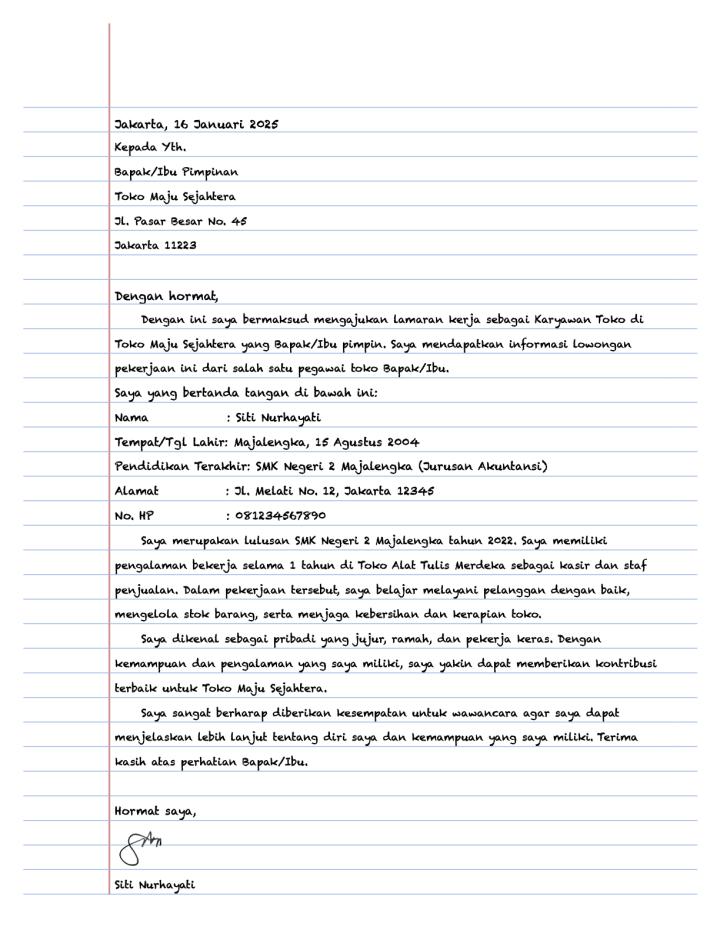 Jakarta, 16 Januari 2025
Kepada Yth.
Bapak/Ibu Pimpinan
Toko Maju Sejahtera
Jl. Pasar Besar No. 45
Jakarta 11223
Dengan hormat,
Dengan ini saya bermaksud mengajukan lamaran kerja sebagai Karyawan Toko di
Toko Maju Sejahtera yang Bapak/Ibu pimpin. Saya mendapatkan informasi lowongan
pekerjaan ini dari salah satu pegawai toko Bapak/Ibu.
Saya yang bertanda tangan di bawah ini:
Nama : Siti Nurhayati
Tempat/Tgl Lahir: Majalengka, 15 Agustus 2004
Pendidikan Terakhir: SMK Negeri 2 Majalengka (Jurusan Akuntansi)
Alamat : Jl. Melati No. 12, Jakarta 12345
No. HP : 081234567890
Saya merupakan lulusan SMK Negeri 2 Majalengka tahun 2022. Saya memiliki
pengalaman bekerja selama 1 tahun di Toko Alat Tulis Merdeka sebagai kasir dan staf
penjualan. Dalam pekerjaan tersebut, saya belajar melayani pelanggan dengan baik,
mengelola stok barang, serta menjaga kebersihan dan kerapian toko.
Saya dikenal sebagai pribadi yang jujur, ramah, dan pekerja keras. Dengan
kemampuan dan pengalaman yang saya miliki, saya yakin dapat memberikan kontribusi
terbaik untuk Toko Maju Sejahtera.
Saya sangat berharap diberikan kesempatan untuk wawancara agar saya dapat
menjelaskan lebih lanjut tentang diri saya dan kemampuan yang saya miliki. Terima
kasih atas perhatian Bapak/Ibu.
Hormat saya,
Siti Nurhayati